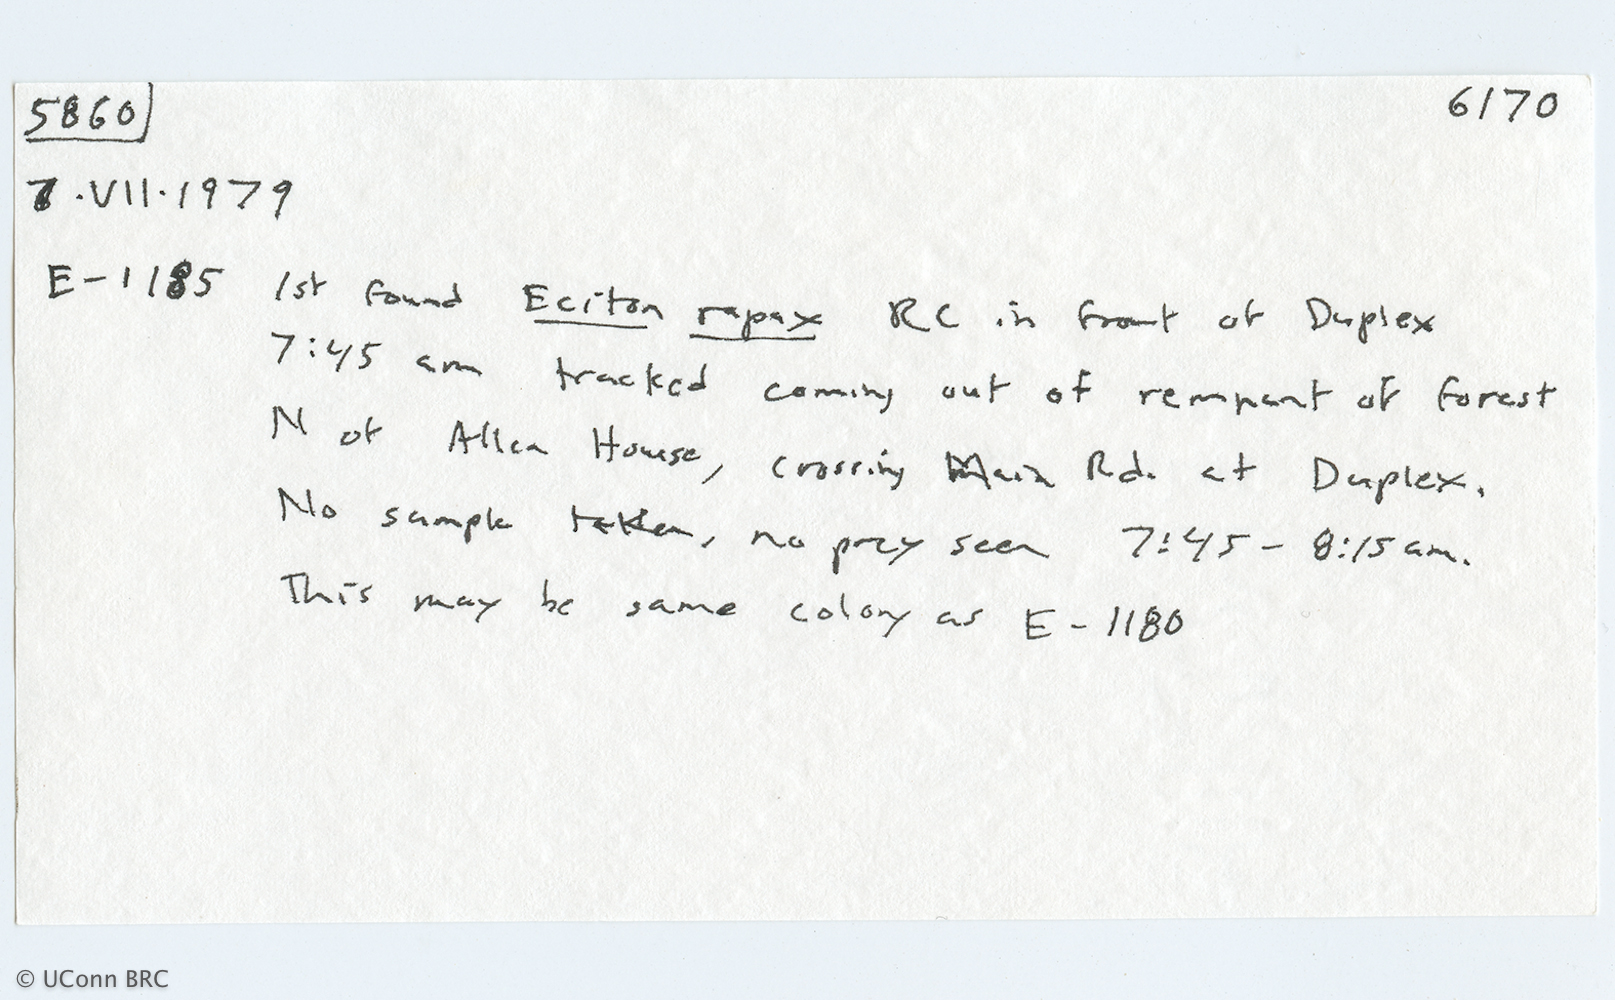 5860 6170
7.VII.1979
E-1185 1st found Eciton rapax RC in front of Duplex
7:45 am tracked coming out of rempant of forest
N of Allen House, crossing Main Rd. at Duplex.
No sample taken, no prey seen 7:45 - 8:15 am.
This may be same colony as E-1180
© UConn BRC